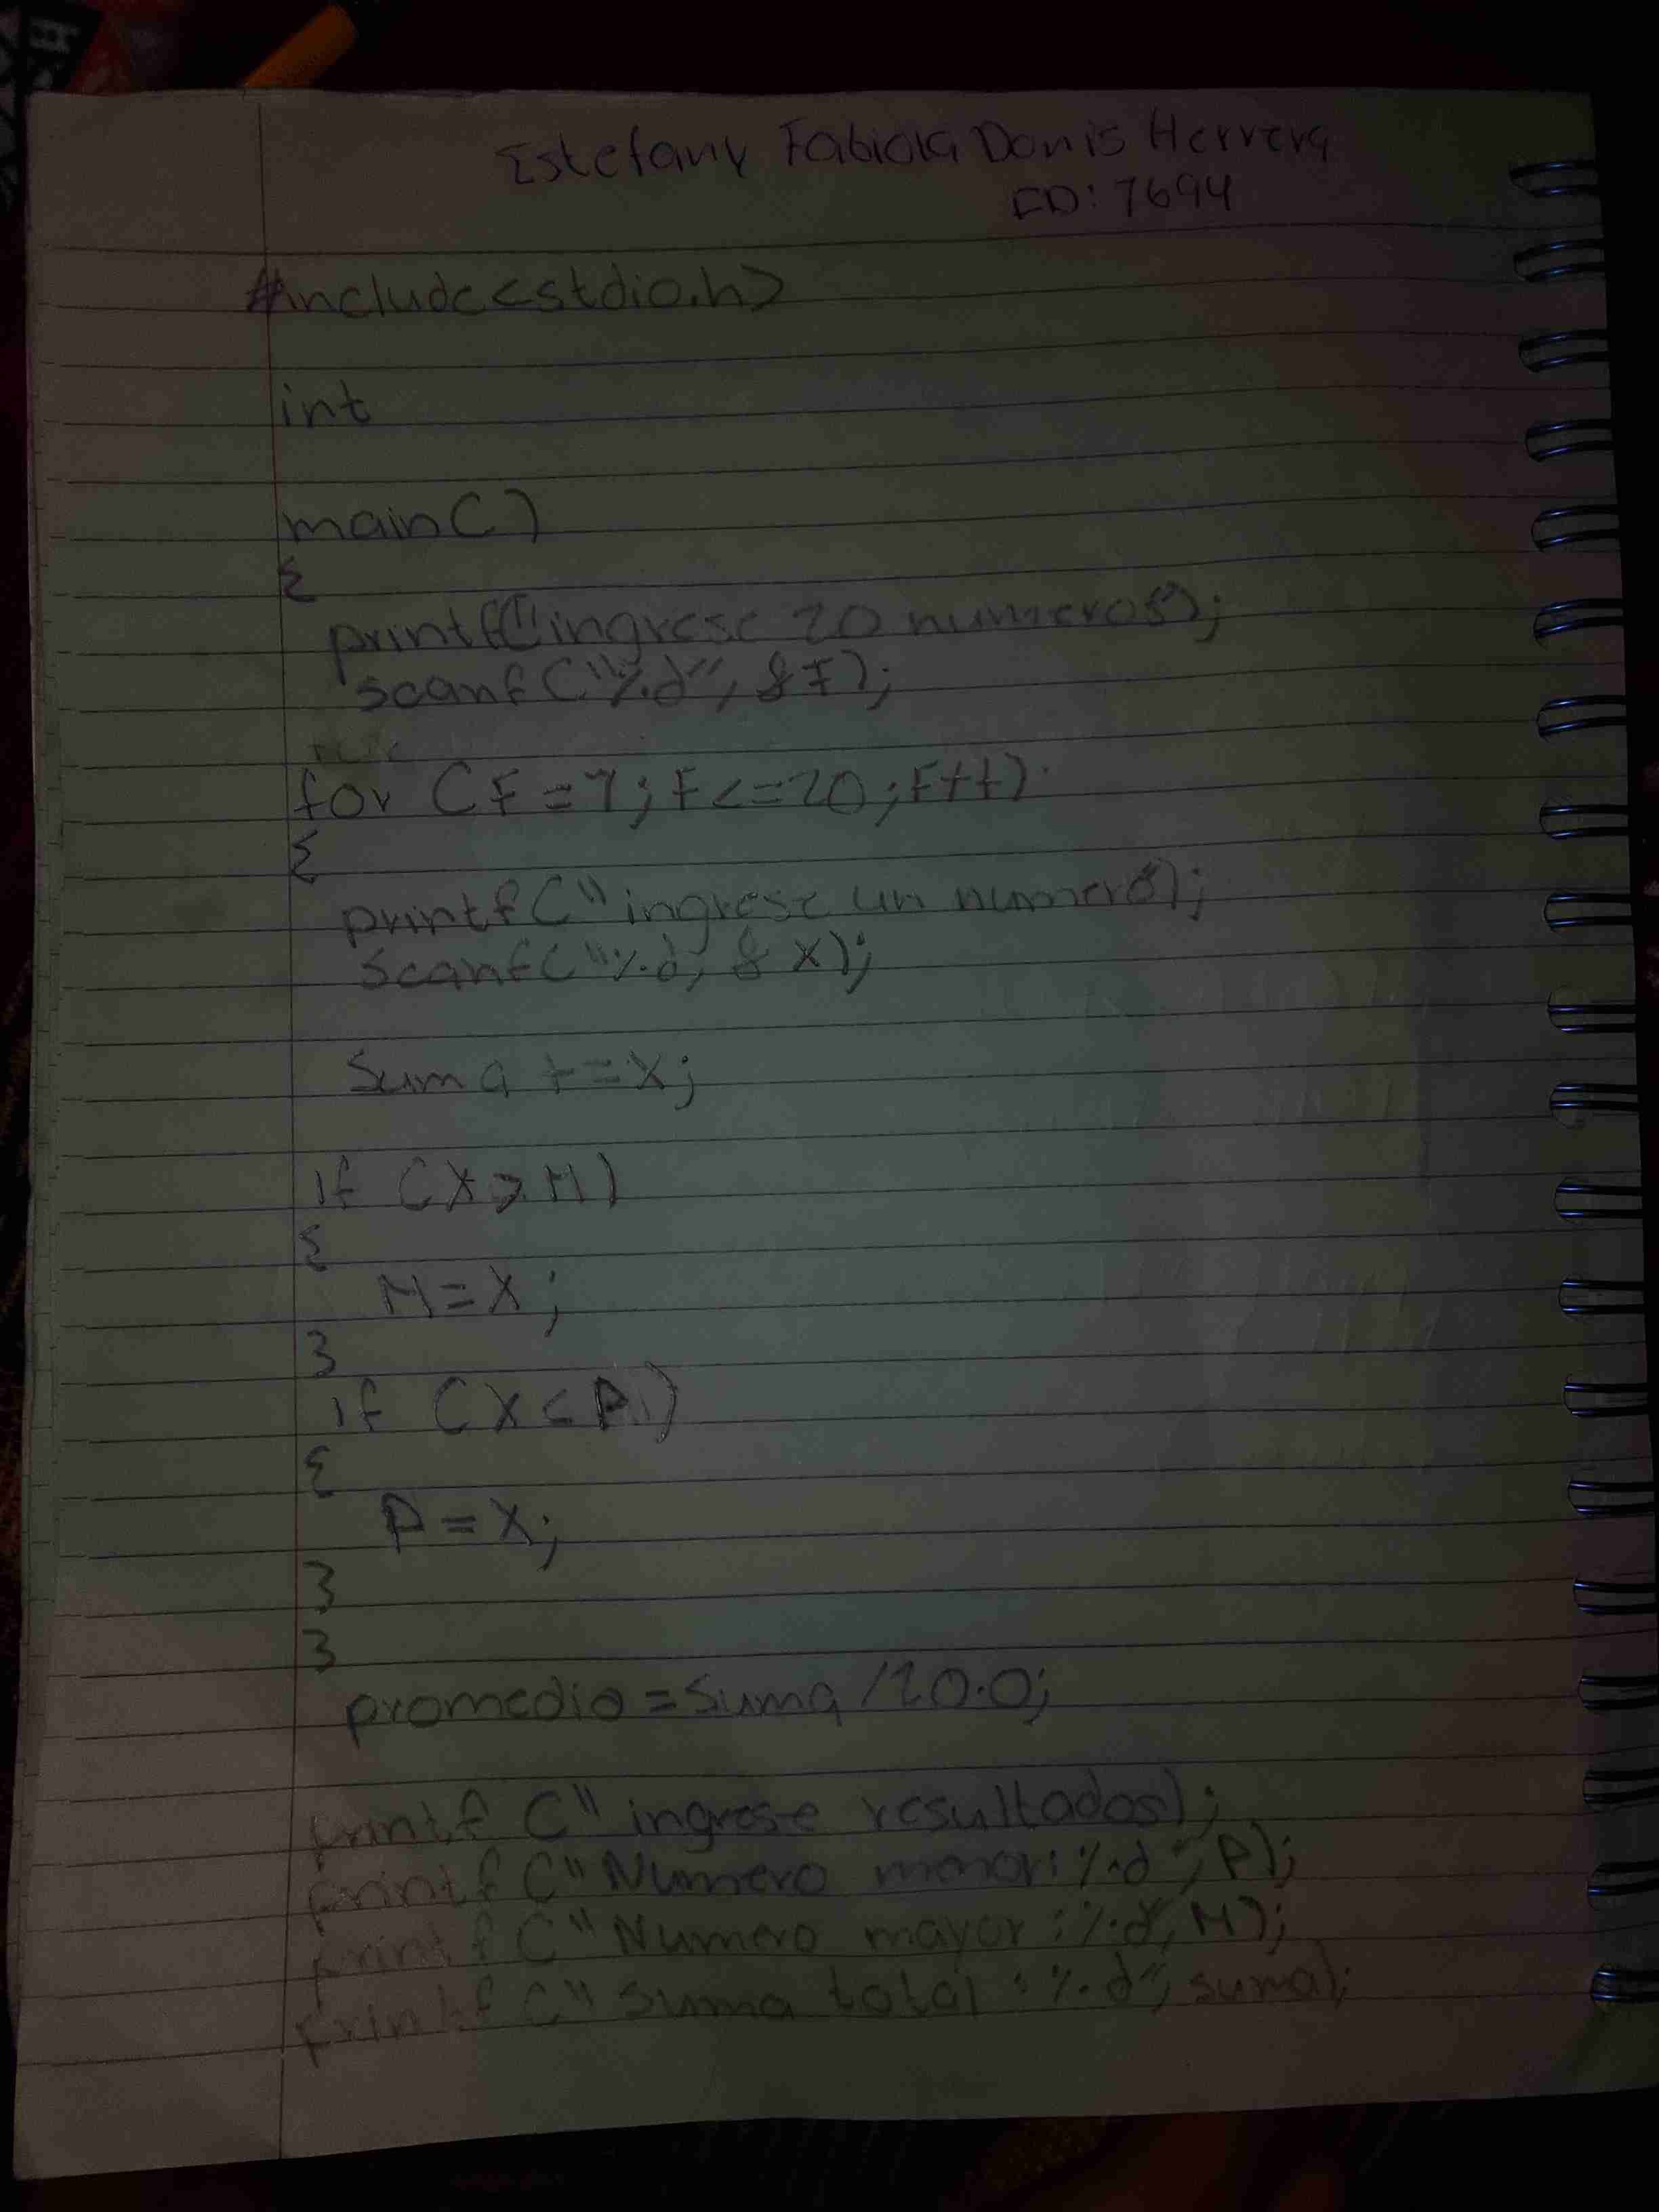 Estefany Fabiola Donis Herrera
ID: 7694
#include<stdio.h>
int
main()
{
printf("ingrese 20 numeros");
scanf("%d", &I);
for (I=1; I<=20; I++)
{
printf("ingrese un numero");
scanf("%d, &x);
Suma +=x;
if (x>M)
{
M=x;
}
if (x<P)
{
P=x;
}
}
promedio=Suma/20.0;
printf("ingrese resultados);
printf("Numero menor: %d", P);
printf("Numero mayor: %d", M);
printf("suma total: %d", suma);